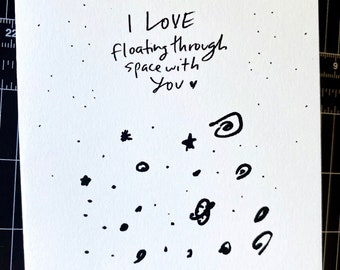 I LOVE
floating through
space with
You ♥